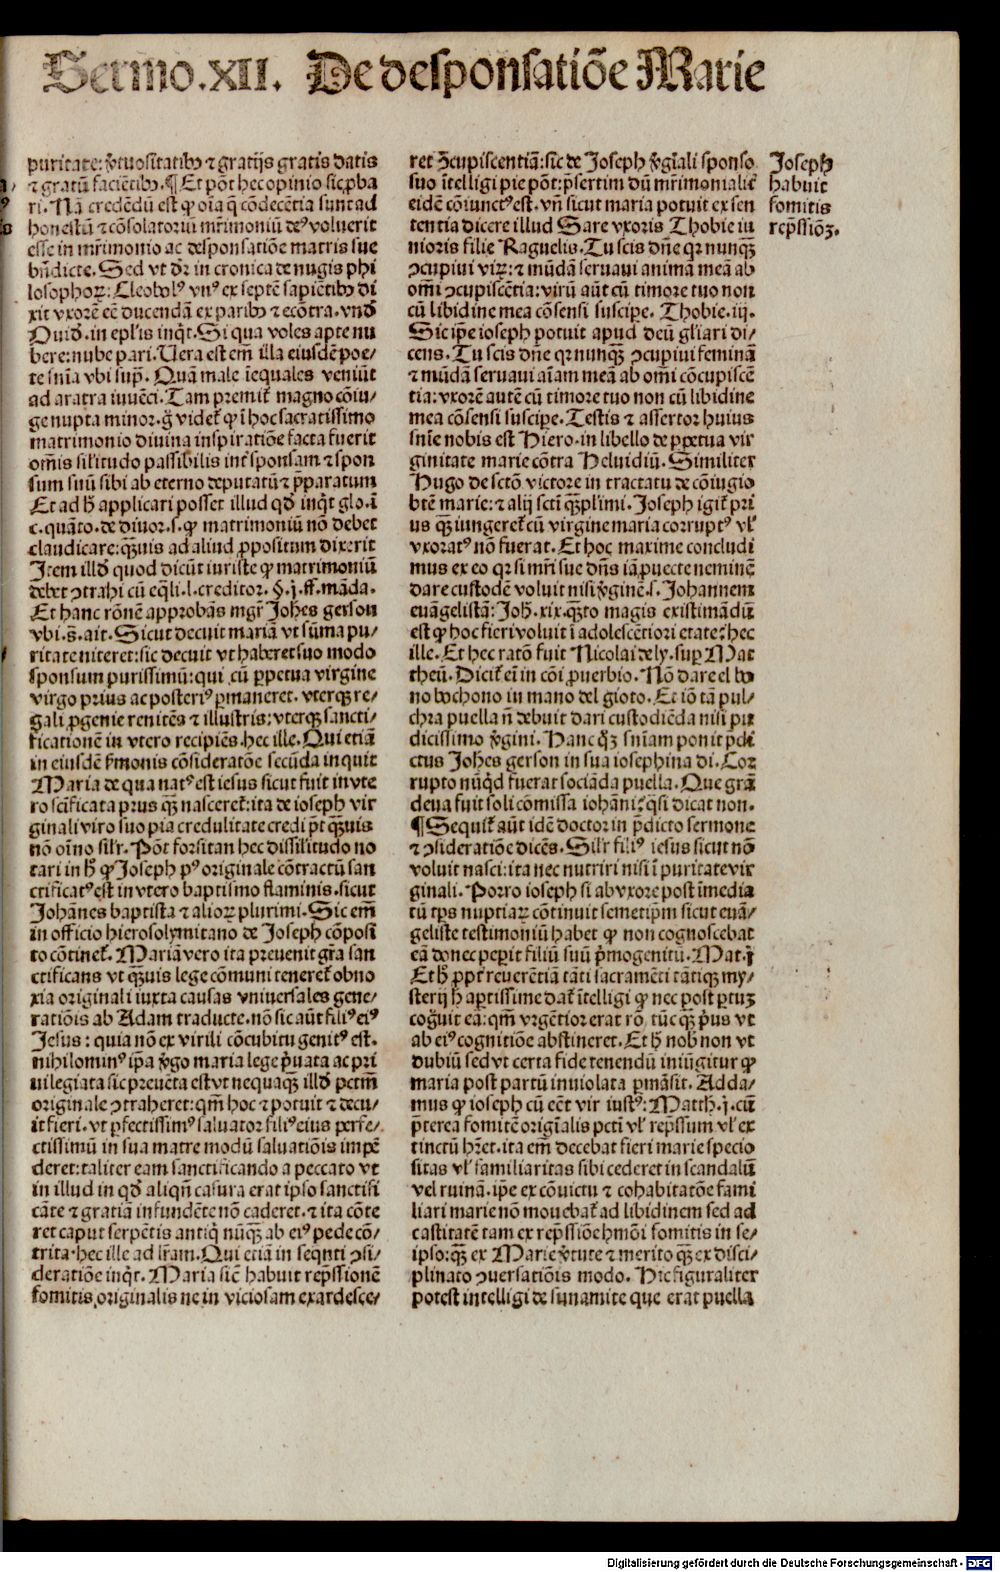 Sermo.XII. De desponsatiōe Marie
puritate: v̄tuositatibꝰ ⁊ gratijs gratis datis
⁊ gratū faciētibꝰ.¶Et pōt hec opinio sic ꝓba
ri. Nā credēdū est ꝙ oīa q̄ cōdecētia sunt ad
honestū ⁊ cōsolatoriū mr̄imoniū deꝰ voluerit
esse in mr̄imonio ac desponsatiōe matris sue
bn̄dicte. Sed vt dr̄ in cronica de nugis phi
losophoꝝ: Cleobolꝰ vnꝰ ex septē sapiētibꝰ di
xit vxorē eē ducendā ex paribꝰ ⁊ ecōtra. vnd̄
Ouid̄. in ep̄lis inq̄t. Si qua voles apte nu
bere: nube pari. Uera est em̄ illa eiusdē poe/
te sn̄ia vbi supͣ. Quā male īequales veniūt
ad aratra iuuēci. Tam premit᷑ magno cōiu/
ge nupta minor. g̊ videt᷑ ꝙ ī hoc sacratissimo
matrimonio diuina inspiratiōe facta fuerit
om̄is sil̄itudo passibilis int̄ sponsam ⁊ spon
sum suū sibi ab eterno deputatū ⁊ p̄paratum
Et ad h̄ applicari posset illud qd̄ inq̄t glo. ī
c. quāto. de diuor. s. ꝙ matrimoniū nō debet
claudicare: qͣꝫuis ad aliud ꝓpositum dixerit
Item illd̄ quod dicūt iuriste ꝙ matrimoniū
debet ↄtrahi cū eq̄li. l. creditor. §. j. ff. māda.
Et hanc rōnē approbās mgr̄ Joh̄es gerson
vbi .s̄. ait. Sicut decuit mariā vt sūma pu/
ritate niteret: sic decuit vt haberet suo modo
sponsum purissimū: qui cū ꝑpetua virgine
virgo priꝰ ac posteriꝰ ꝑmaneret. vterqꝫ re/
gali ꝓgenie renitēs ⁊ illustris: vterqꝫ sancti/
ficationē in vtero recipiēs. hec ille. Qui etiā
in eiusdē s̄monis cōsideratōe secūda inquit
Maria de qua natꝰ est iesus sicut fuit in vte
ro sc̄ificata prius qͣꝫ nasceret᷑: ita de ioseph vir
ginali viro suo pia credulitate credi pōt qͣꝫuis
nō oīno sil̄r. Pōt forsitan hec dissilitudo no
tari in h̄ ꝙ Joseph pꝰ originale cōtractū san
ctificatꝰ est in vtero baptismo flaminis. sicut
Johānes baptista ⁊ alioꝝ plurimi. Sic em̄
in officio hierosolymitano de Joseph cōposi
to cōtinet᷑. Mariā vero ita preuenit gr̄a san
ctificans vt qͣꝫuis lege cōmuni teneret᷑ obno
xia originali iuxta causas vniuersales gene/
ratiōis ab Adam traducte. nō sic aūt filiꝰ eiꝰ
Jesus: quia nō ex virili cōcubitu genitꝰ est.
nihilominꝰ ip̄a v̄go maria lege p̄uata ac pri
uilegiata sic preuēta est vt nequaqͣꝫ illd̄ pctm̄
originale ↄtraheret: qm̄ hoc ⁊ potuit ⁊ decu/
it fieri. vt ꝑfectissimꝰ saluator filiꝰ eius perfe/
ctissimū in sua matre modū saluatiōis impē
deret: taliter eam sanctificando a peccato vt
in illud in qd̄ aliqn̄ casura erat ipso sanctifi
cāte ⁊ gratiā infundēte nō caderet. ⁊ ita cōte
ret caput serpētis antiq̄ nūqͣꝫ ab eiꝰ pede cō/
trita. hec ille ad lr̄am. Qui etiā in seqn̄ti ↄsi/
deratiōe inq̄t. Maria sicͣ habuit rep̄ssionē
fomitis originalis ne in viciosam exardesce/
ret ↄ̄cupiscentiā: sic̄ de Joseph v̄gīali sponso
suo ītelligi pie pōt: p̄sertim dū mr̄imonialit᷑
eidē cōiunctꝰ est. vn̄ sicut maria potuit ex sen
tentia dicere illud Sare vxoris Thobie iu
nioris filie Raguelis. Tu scis dn̄e qꝛ nunqͣꝫ
ↄcupiui virꝝ: ⁊ mūdā seruaui animā meā ab
om̄i ↄcupiscētia: virū aūt cū timore tuo non
cū libidine mea cōsensi suscipe. Thobie. iij.
Sic ip̄e ioseph potuit apud deū gl̄iari di/
cens. Tu scis dn̄e qꝛ nunqͣꝫ ↄcupiui feminā
⁊ mūdā seruaui aīam meā ab om̄i cōcupiscē
tia: vxorē autē cū timore tuo non cū libidine
mea cōsensi suscipe. Testis ⁊ assertor huius
sn̄ie nobis est Hiero. in libello de ꝑpetua vir
ginitate marie cōtra Heluidiū. Similiter
Hugo de scto̅ victore in tractatu de cōiugio
btē marie: ⁊ alij scti̅ qͣꝫplimi. Joseph igit᷑ pri
us qͣꝫ iungeret᷑ cū virgine maria corruptꝰ vl̓
vxoratꝰ nō fuerat. Et hoc maxime concludi
mus ex eo qꝛ si mr̄i sue dn̄s iā ꝓuecte neminē
dare custodē voluit nisi v̄ginē. s. Johannem
euāgelistā: Joh̄. xix. qͣꝫto magis existimādū
est ꝙ hoc fieri voluit ī adolescētiori etate? hec
ille. Et hec ratō fuit Nicolai de ly. suꝑ Mat
theū. Dicit᷑ ei̅ in cōi ꝓuerbio. Nō dare el bo
no bochono in mano del gioto. Et iō tā pul/
chra puella n̄ debuit dari custodiēda nisi pu
dicissimo v̄gini. Hanc qͦꝫ sn̄iam ponit pdi̅
ctus Joh̄es gerson in sua iosephina di. Cor
rupto nūqͥd fuerat sociāda puella. Que grā
deua fuit soli cōmissa iohāni? q̄si dicat non.
¶Sequit᷑ aūt idē doctor in p̄dicto sermone
⁊ ↄsideratiōe dicēs. Sil̄r filiꝰ iesus sicut nō
voluit nasci: ita nec nutriri nisi ī puritate vir
ginali. Porro ioseph si ab vxore post īmedia
tū tꝑs nuptiaꝝ cōtinuit semetipm̄ sicut euā/
geliste testimoniū habet ꝙ non cognoscebat
eā donec peꝑit filiū suū p̄mogenitū. Mat. j
Et h̄ ꝓpt̄ reuerētiā tāti sacramēti tātiqꝫ my/
sterij h̄ aꝑtissime dat᷑ ītelligi ꝙ nec post ꝑtuꝫ
cog̅uit eā: qm̄ vrgētior erat rō tūc qͣꝫ p̄us vt
ab eiꝰ cognitiōe abstineret. Et h̄ nob̄ non vt
dubiū sed vt certa fide tenendū iniūgitur ꝙ
maria post partū inuiolata ꝑmāsit. Adda/
mus ꝙ ioseph cū eēt vir iustꝰ: Matth. j. cū
p̄terea fomitē origīalis pctī vl̓ rep̄ssum vl̓ ex
tinctū hr̄et. ita em̄ decebat fieri marie specio
sitas vl̓ familiaritas sibi cederet in scandalū
vel ruinā. ip̄e ex cōuictu ⁊ cohabitatōe fami
liari marie nō mouebat᷑ ad libidinem sed ad
castitatē tam ex rep̄ssiōe hmōi fomitis in se/
ipso: qͣꝫ ex Marie v̄tute ⁊ merito qͣꝫ ex disci/
plinato ↄuersatiōis modo. Hic figuraliter
potest intelligi de sunamite que erat puella
Joseph
habuit
fomitis
rep̄ssiōꝫ.
Digitalisierung gefördert durch die Deutsche Forschungsgemeinschaft - DFG